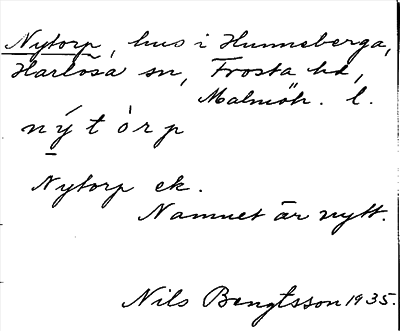 Nytorp, hus i Hunneberga,
Harlösa sn, Frosta hd,
Malmöh. l.
nýtòrp
Nytorp ek.
Namnet är nytt.
Nils Bengtsson 1935.